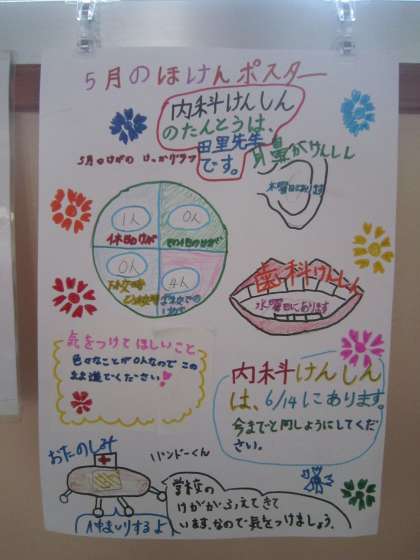 5月のほけんポスター
内科けんしん
のたんとうは、
田里先生
です。
耳鼻がけんしん
水曜日にあります
5月のけがの
1人
0人
休日のけが
0人
4人
歯科けんしん
水曜日にあります
気をつけてほしいこと
色々なことが0人なので この
まま過ごしてください!
内科けんしん
は、6/14にあります。
今までと同じようにしてくだ
さい。
おたのしみ
バンドーくん
学校の
けががふえてきて
います。なので気をつけましょう。